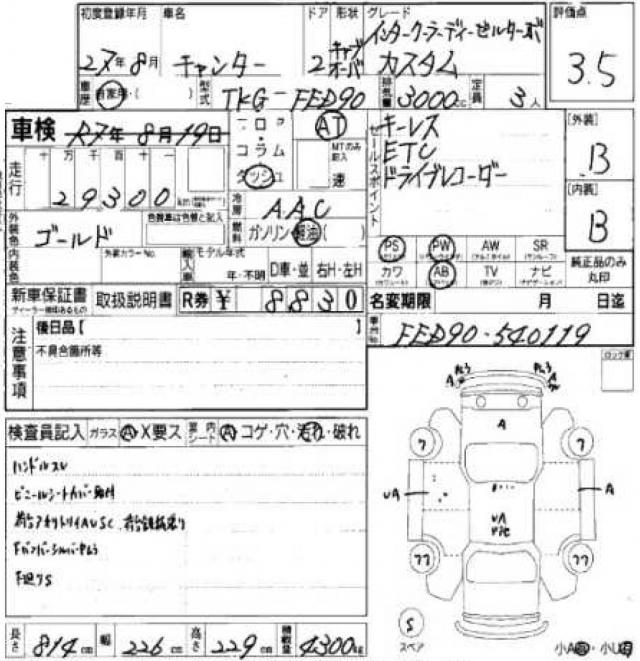 初度登録年月 車名 ドア 形状 グレード 評価点
27年8月 キャンター 2 キャブオーバ インタークーラーディーゼルターボ カスタム 3.5
車歴 自家用・( ) 型式 TKG-FED90 排気量 3000cc 定員 3人
車検 R7年8月19日
フロア・コラム ダッシュ AT
MTのみ記入
速
セールスポイント
キーレス
ETC
ドライブレコーダー
[外装]
B
[内装]
B
走行 十 万 千 百 十 一
29300
冷房 AAC
燃料 ガソリン 軽油( )
外装色 ゴールド
色替車は色替と記入
内装色 外装カラーNo. 輸入車 モデル年式
年・不明 D車・並 右H・左H
PS PW AW SR
カワ AB TV ナビ
純正品のみ丸印
新車保証書 取扱説明書 R券 ¥ 8830
ディーラー捺印あるもの
名変期限 月 日迄
車台No. FED90-540119
注意事項
後日品【
不具合箇所等
ロック車
検査員記入 ガラス A X要ス 室内シート A コゲ・穴・汚れ・破れ
ハンドルスレ
A A
A
ワ ワ
UA A
UA
ワワ ワワ
S
スペア
長さ 814cm 幅 226cm 高さ 229cm 積載量 4300kg